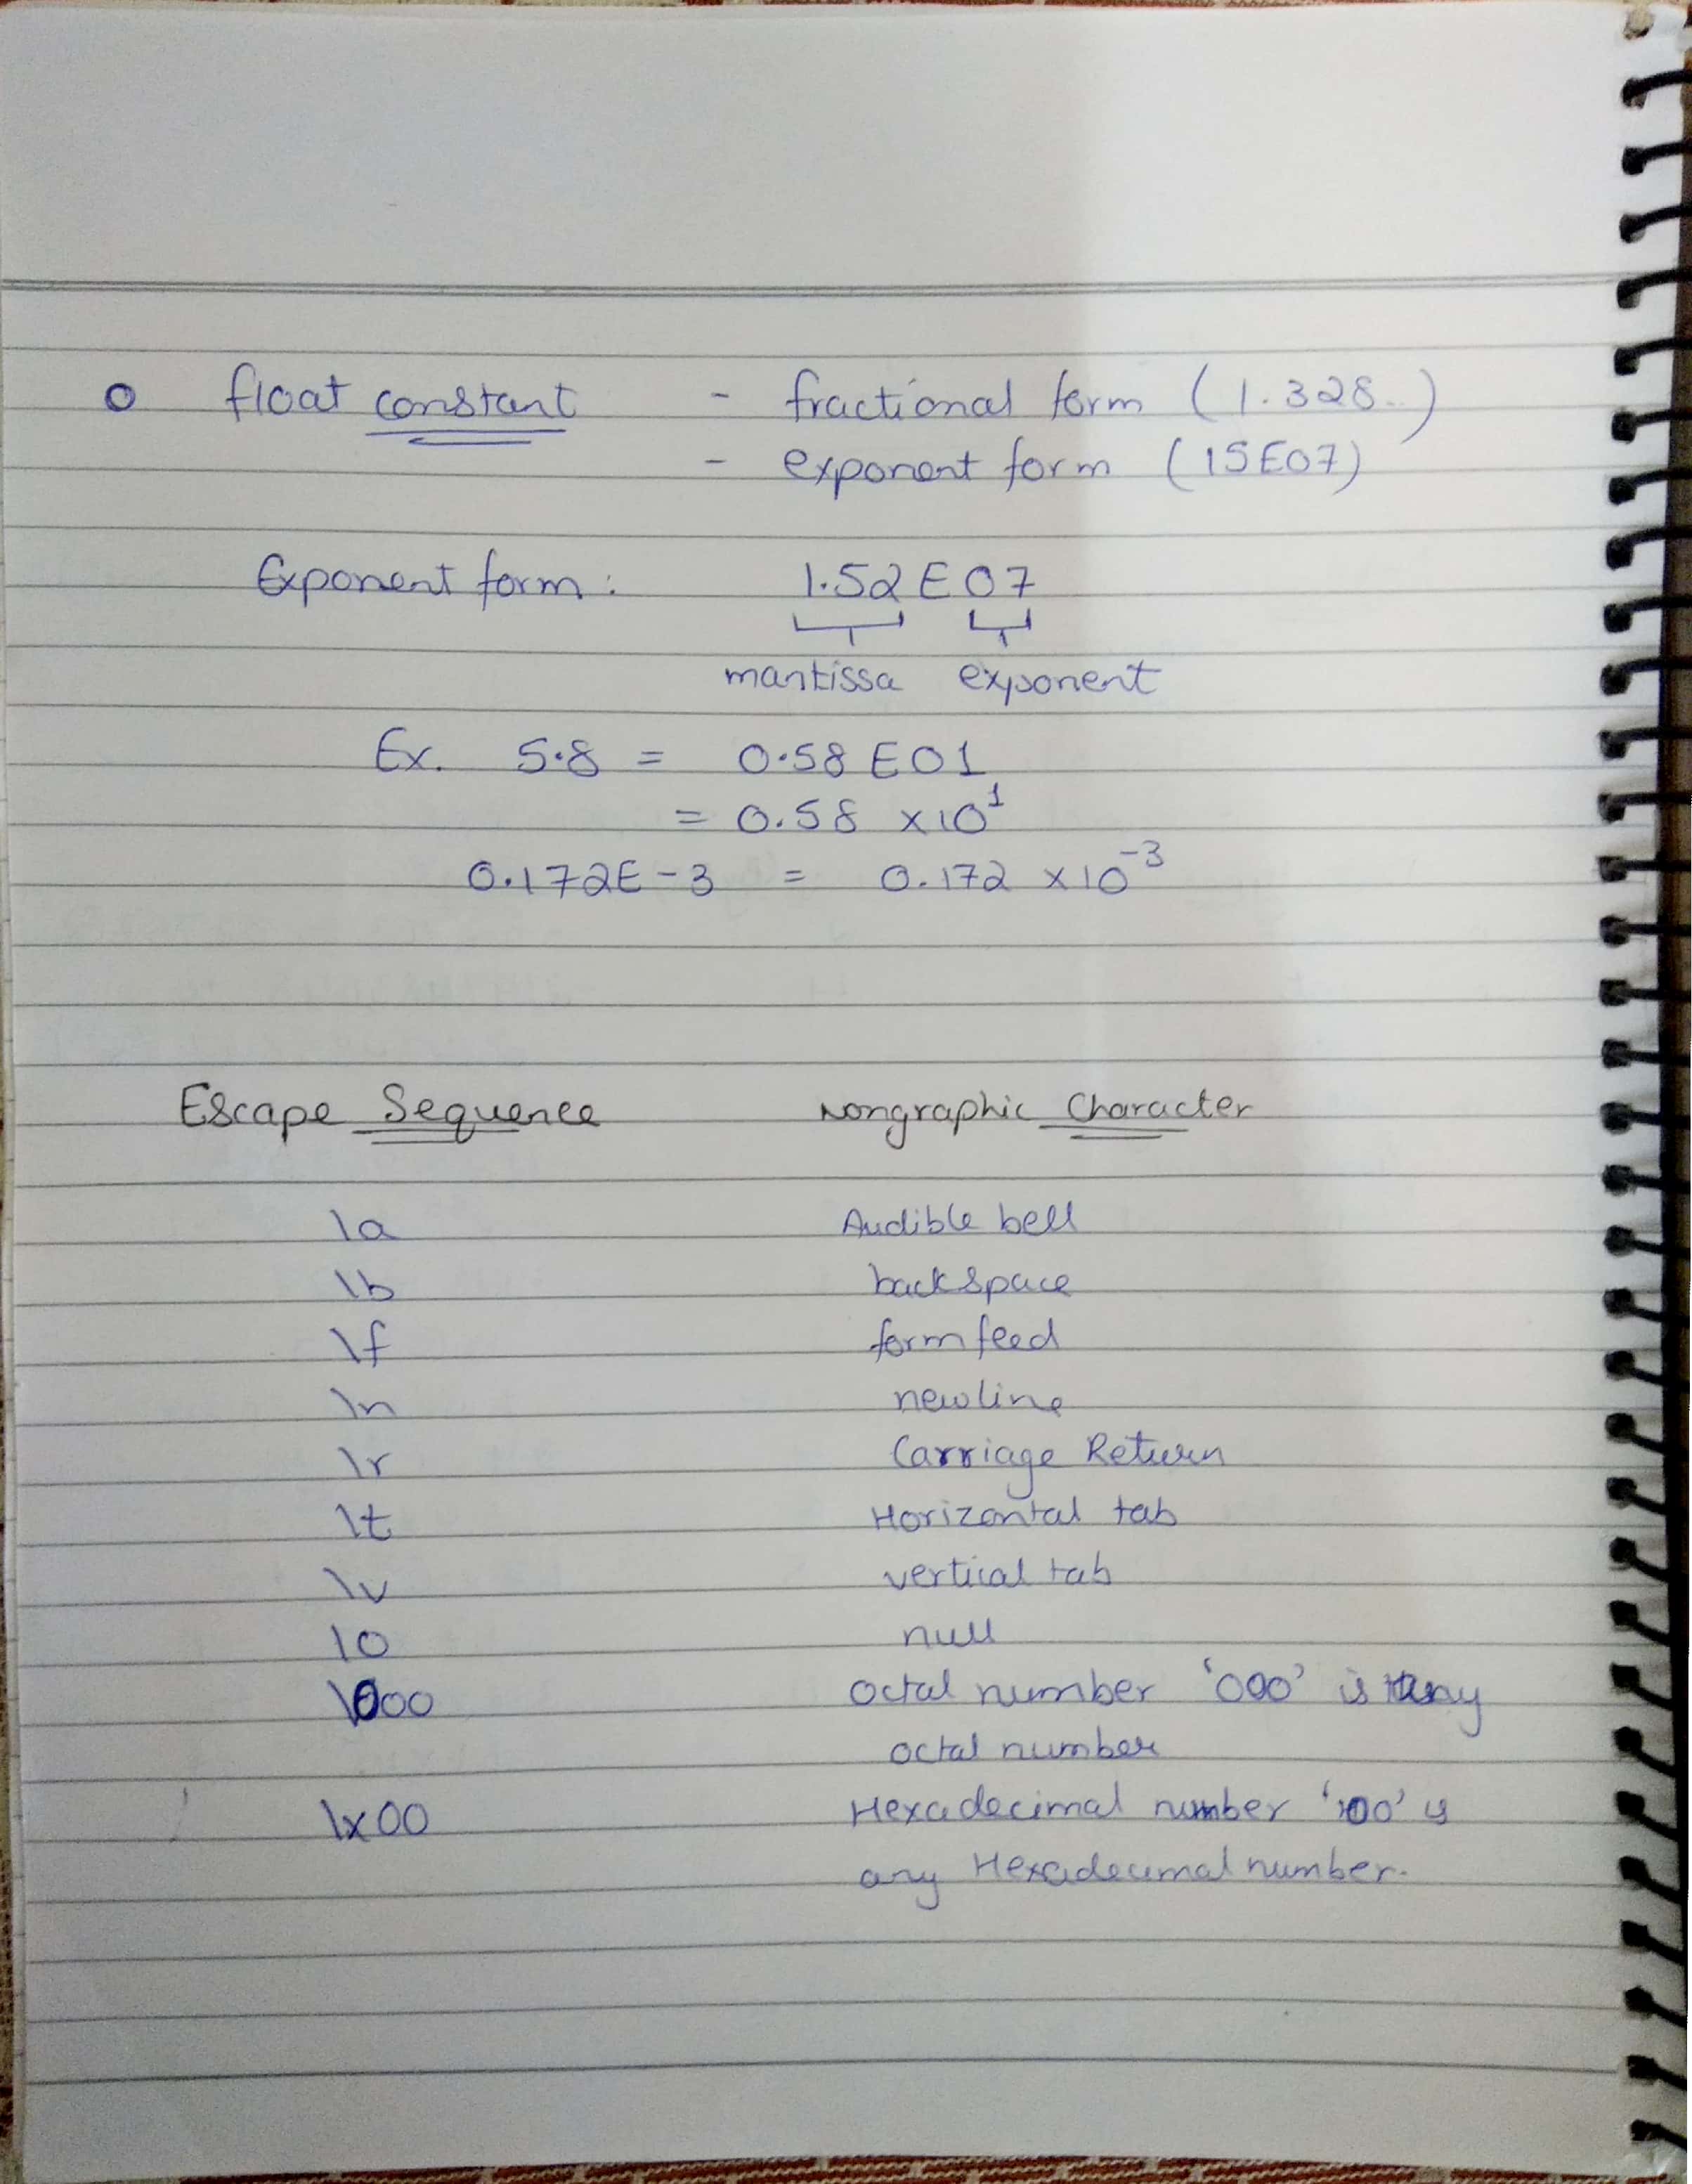 o float constant - fractional form (1.328..)
- exponent form (15E07)
Exponent form : 1.52 E 07
mantissa exponent
Ex. 5.8 = 0.58 E01
= 0.58 x10¹
0.172E-3 = 0.172 x10⁻³
Escape Sequence Nongraphic Character
\a Audible bell
\b backspace
\f formfeed
\n newline
\r Carriage Return
\t Horizontal tab
\v vertical tab
\0 null
\000 Octal number '000' is any
octal number
\x00 Hexadecimal number '00' is
any Hexadecimal number.